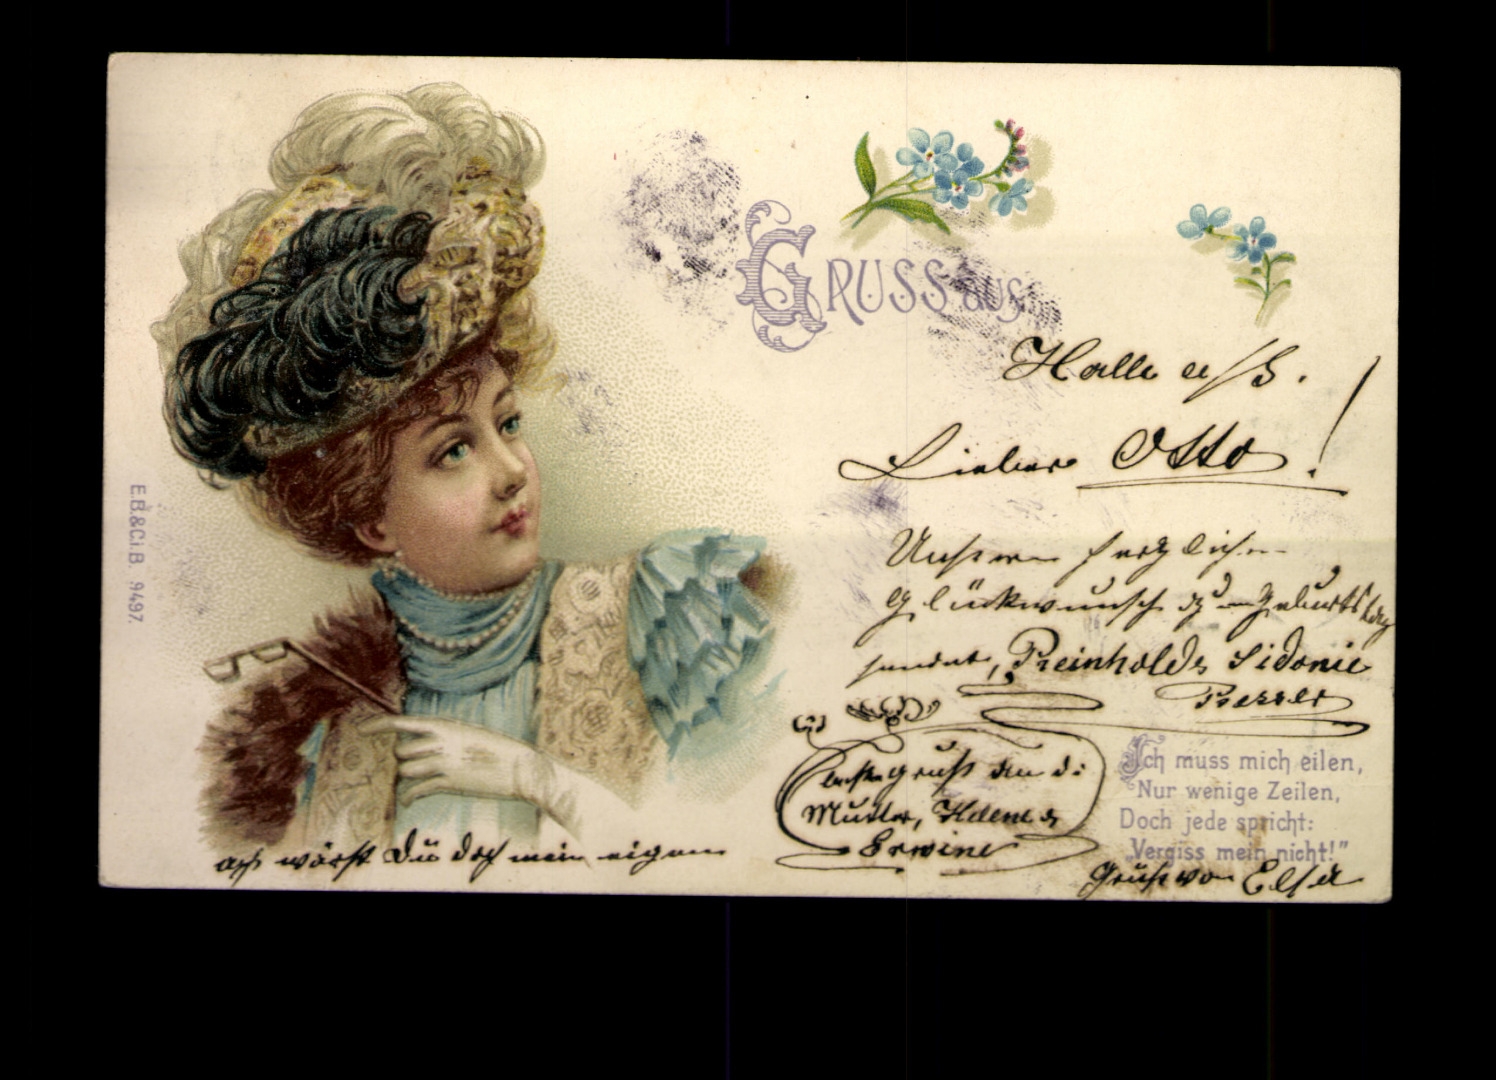 GRUSS aus
Halle a/S.
Lieber Otto!
Unseren herzlichen
Glückwunsch zum Geburtstag
sendet, Reinhold, Sidonie
Gruß an die
Mutter, Helene &
Erwine
ach wärst Du doch mein eigen
Ich muss mich eilen,
Nur wenige Zeilen,
Doch jede spricht:
„Vergiss mein nicht!"
Gruß von Elsa
E.B.&C.i.B. 9497.